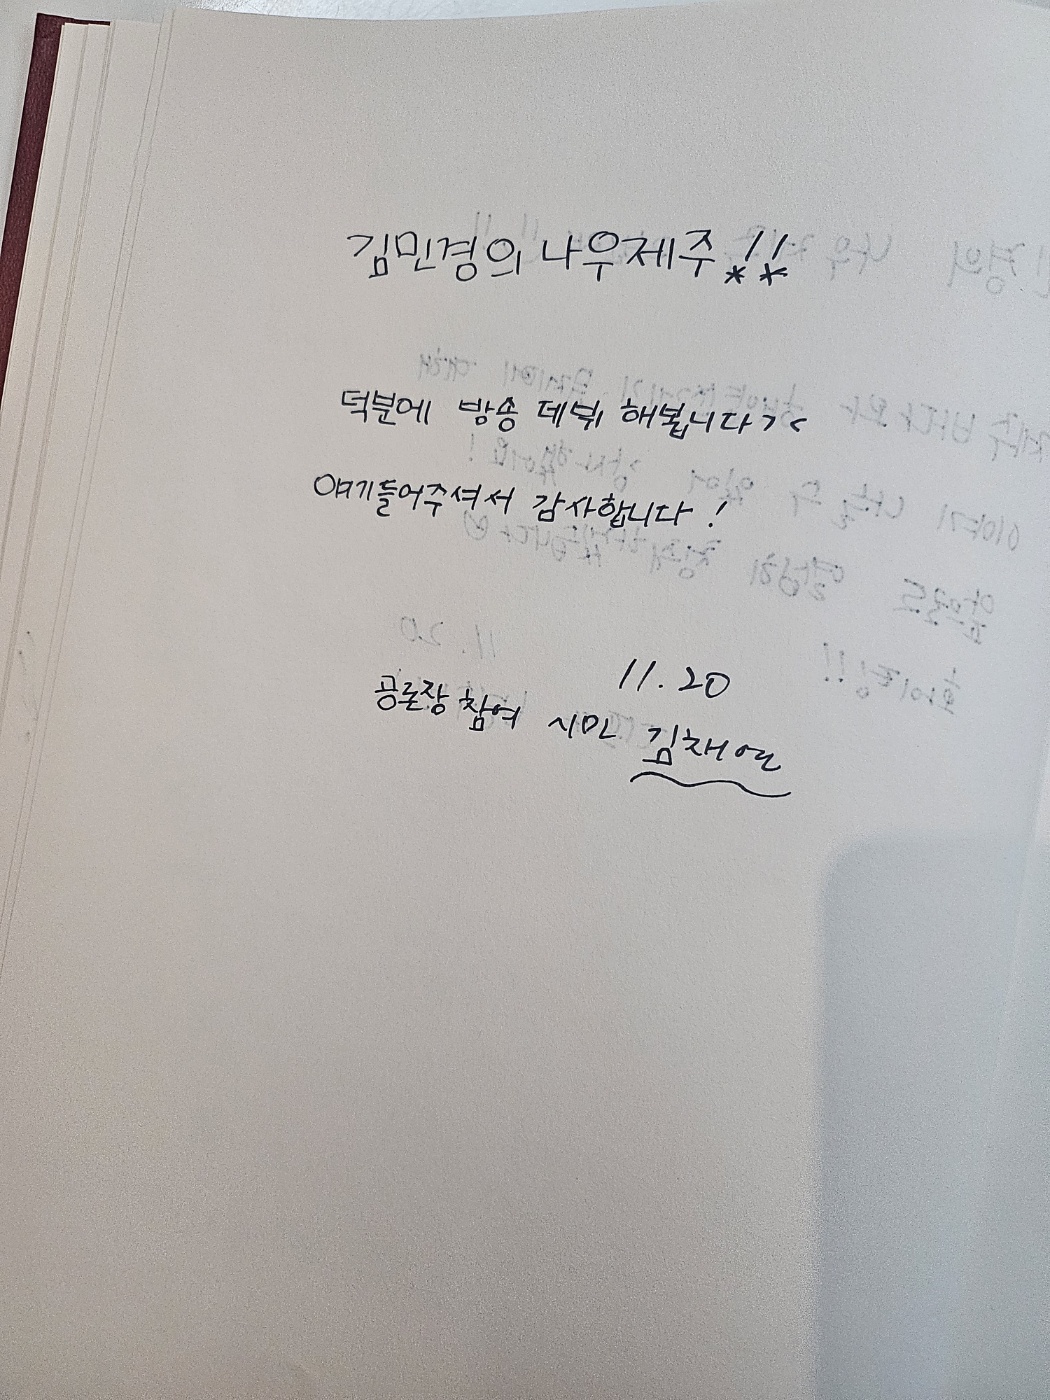 김민경의 나우제주!!
덕분에 방송 데뷔 해봅니다 ><
얘기들어주셔서 감사합니다!
11.20
공론장 참여 시민 김채연